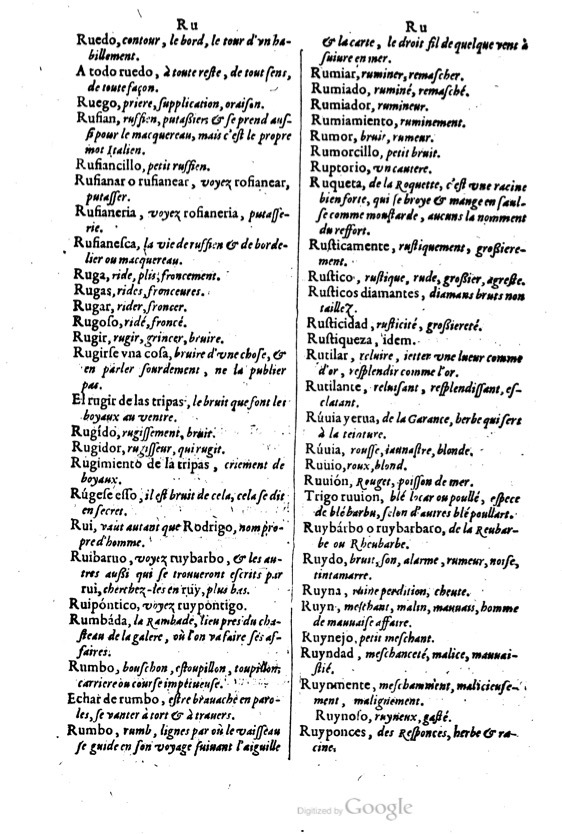 Ru
Ruedo, contour, le bord, le tour d'vn ha-
billement.
A todo ruedo, à toute reste, de tout sens,
de toute façon.
Ruego, priere, supplication, oraison.
Rufian, ruffien, putassiers & se prend aus-
si pour le macquereau, mais c'est le propre
mot Italien.
Rufiancillo, petit ruffien.
Rufianar o rufianear, voyez rofianear,
putasser.
Rufianeria, voyez rofianeria, putasse-
rie.
Rufianesca, la vie de ruffien & de borde-
lier ou macquereau.
Ruga, ride, plis, froncement.
Rugas, rides, fronceures.
Rugar, rider, froncer.
Rugoso, ridé, froncé.
Rugir, rugir, grincer, bruire.
Rugirse vna cosa, bruire d'vne chose, &
en parler sourdement, ne la publier
pas.
El rugir de las tripas, le bruit que font les
boyaux au ventre.
Rugído, rugissement, bruit.
Rugidor, rugisseur, qui rugit.
Rugimiento de la tripas, criement de
boyaux.
Rúgese esso, il est bruit de cela, cela se dit
en secret.
Rui, vaut autant que Rodrigo, nom pro-
pre d'homme.
Ruibaruo, voyez ruybarbo, & les au-
tres aussi qui se trouueront escrits par
rui, cherchez-les en ruy, plus bas.
Ruipóntico, voyez ruypontigo.
Rumbáda, la Rambade, lieu pres du cha-
steau de la galere, où l'on va faire ses af-
faires.
Rumbo, bouschon, estoupillon, toupillon,
carriere ou course impetueuse.
Echar de rumbo, estre brauache en paro-
les, se vanter à tort & à trauers.
Rumbo, rumb, lignes par où le vaisseau
se guide en son voyage suiuant l'aiguille
Ru
& la carte, le droit fil de quelque vent à
suiure en mer.
Rumiar, ruminer, remascher.
Rumiado, ruminé, remasché.
Rumiador, rumineur.
Rumiamiento, ruminement.
Rumor, bruit, rumeur.
Rumorcillo, petit bruit.
Ruptorio, vn cautere.
Ruqueta, de la Roquette, c'est vne racine
bien forte, qui se broye & mange en saul-
se comme moustarde, aucuns la nomment
du reffort.
Rusticamente, rustiquement, grossiere-
ment.
Rustico, rustique, rude, grossier, agreste.
Rusticos diamantes, diamans bruts non
taillez.
Rusticidad, rusticité, grossiereté.
Rustiqueza, idem.
Rutilar, reluire, ietter vne lueur comme
d'or, resplendir comme l'or.
Rutilante, reluisant, resplendissant, es-
clatant.
Rúuia yerua, de la Garance, herbe qui sert
à la teinture.
Rúuia, rousse, iaunastre, blonde.
Ruuio, roux, blond.
Ruuión, Rouget, poisson de mer.
Trigo ruuion, blé locar ou poullé, espece
de blé barbu, selon d'autres blé poullart.
Ruybárbo o ruybarbaro, de la Reubar-
be ou Rheubarbe.
Ruydo, bruit, son, alarme, rumeur, noise,
tintamarre.
Ruyna, ruine perdition, cheute.
Ruyn, meschant, malin, mauuais, homme
de mauuaise affaire.
Ruynejo, petit meschant.
Ruyndad, meschanceté, malice, mauuai-
stié.
Ruynmente, meschamment, malicieuse-
ment, malignement.
Ruynoso, ruyneux, gasté.
Ruyponces, des Responces, herbe & ra-
cine.
Digitized by Google